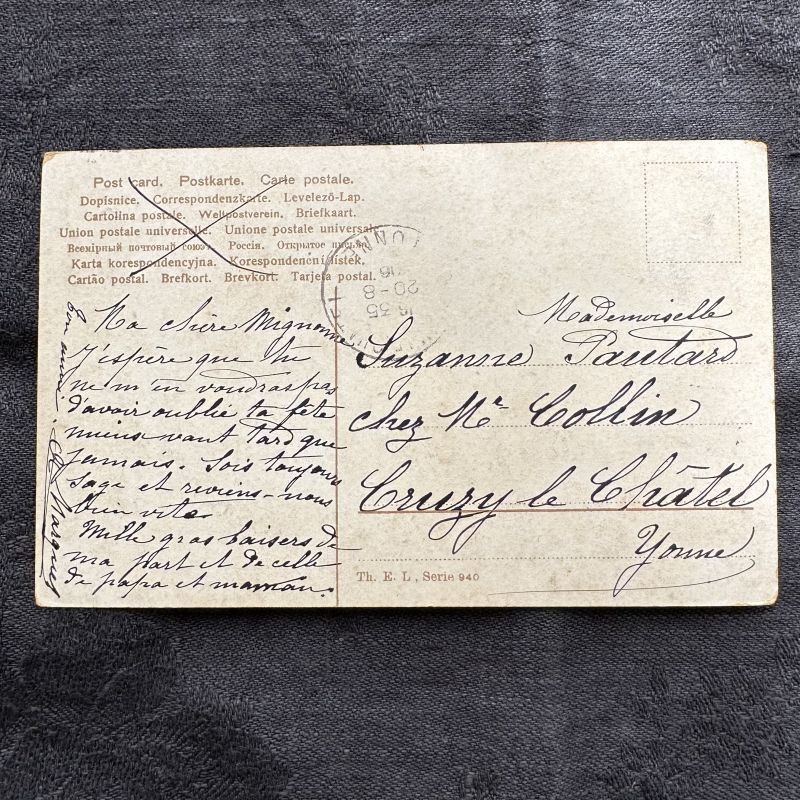 Post card. Postkarte. Carte postale.
Dopisnice. Correspondenzkarte. Levelező-Lap.
Cartolina postale. Weltpostverein. Briefkaart.
Union postale universelle. Unione postale universale.
Всемірный почтовый союзъ. Россія. Открытое письмо.
Karta korespondencyjna. Korespondenční lístek.
Cartão postal. Brefkort. Brevkort. Tarjeta postal.
Ma chère Mignonne
J'espère que tu
ne m'en voudras pas
d'avoir oublié ta fête
mieux vaut tard que
jamais. Sois toujours
sage et reviens-nous
bien vite
Mille gros baisers de
ma part et de celle
de papa et maman.
Ton ami.
YONNE
20-8
35
Mademoiselle
Suzanne Pautard
chez Mr Collin
Cruzy le Châtel
Yonne
Th. E. L., Serie 940